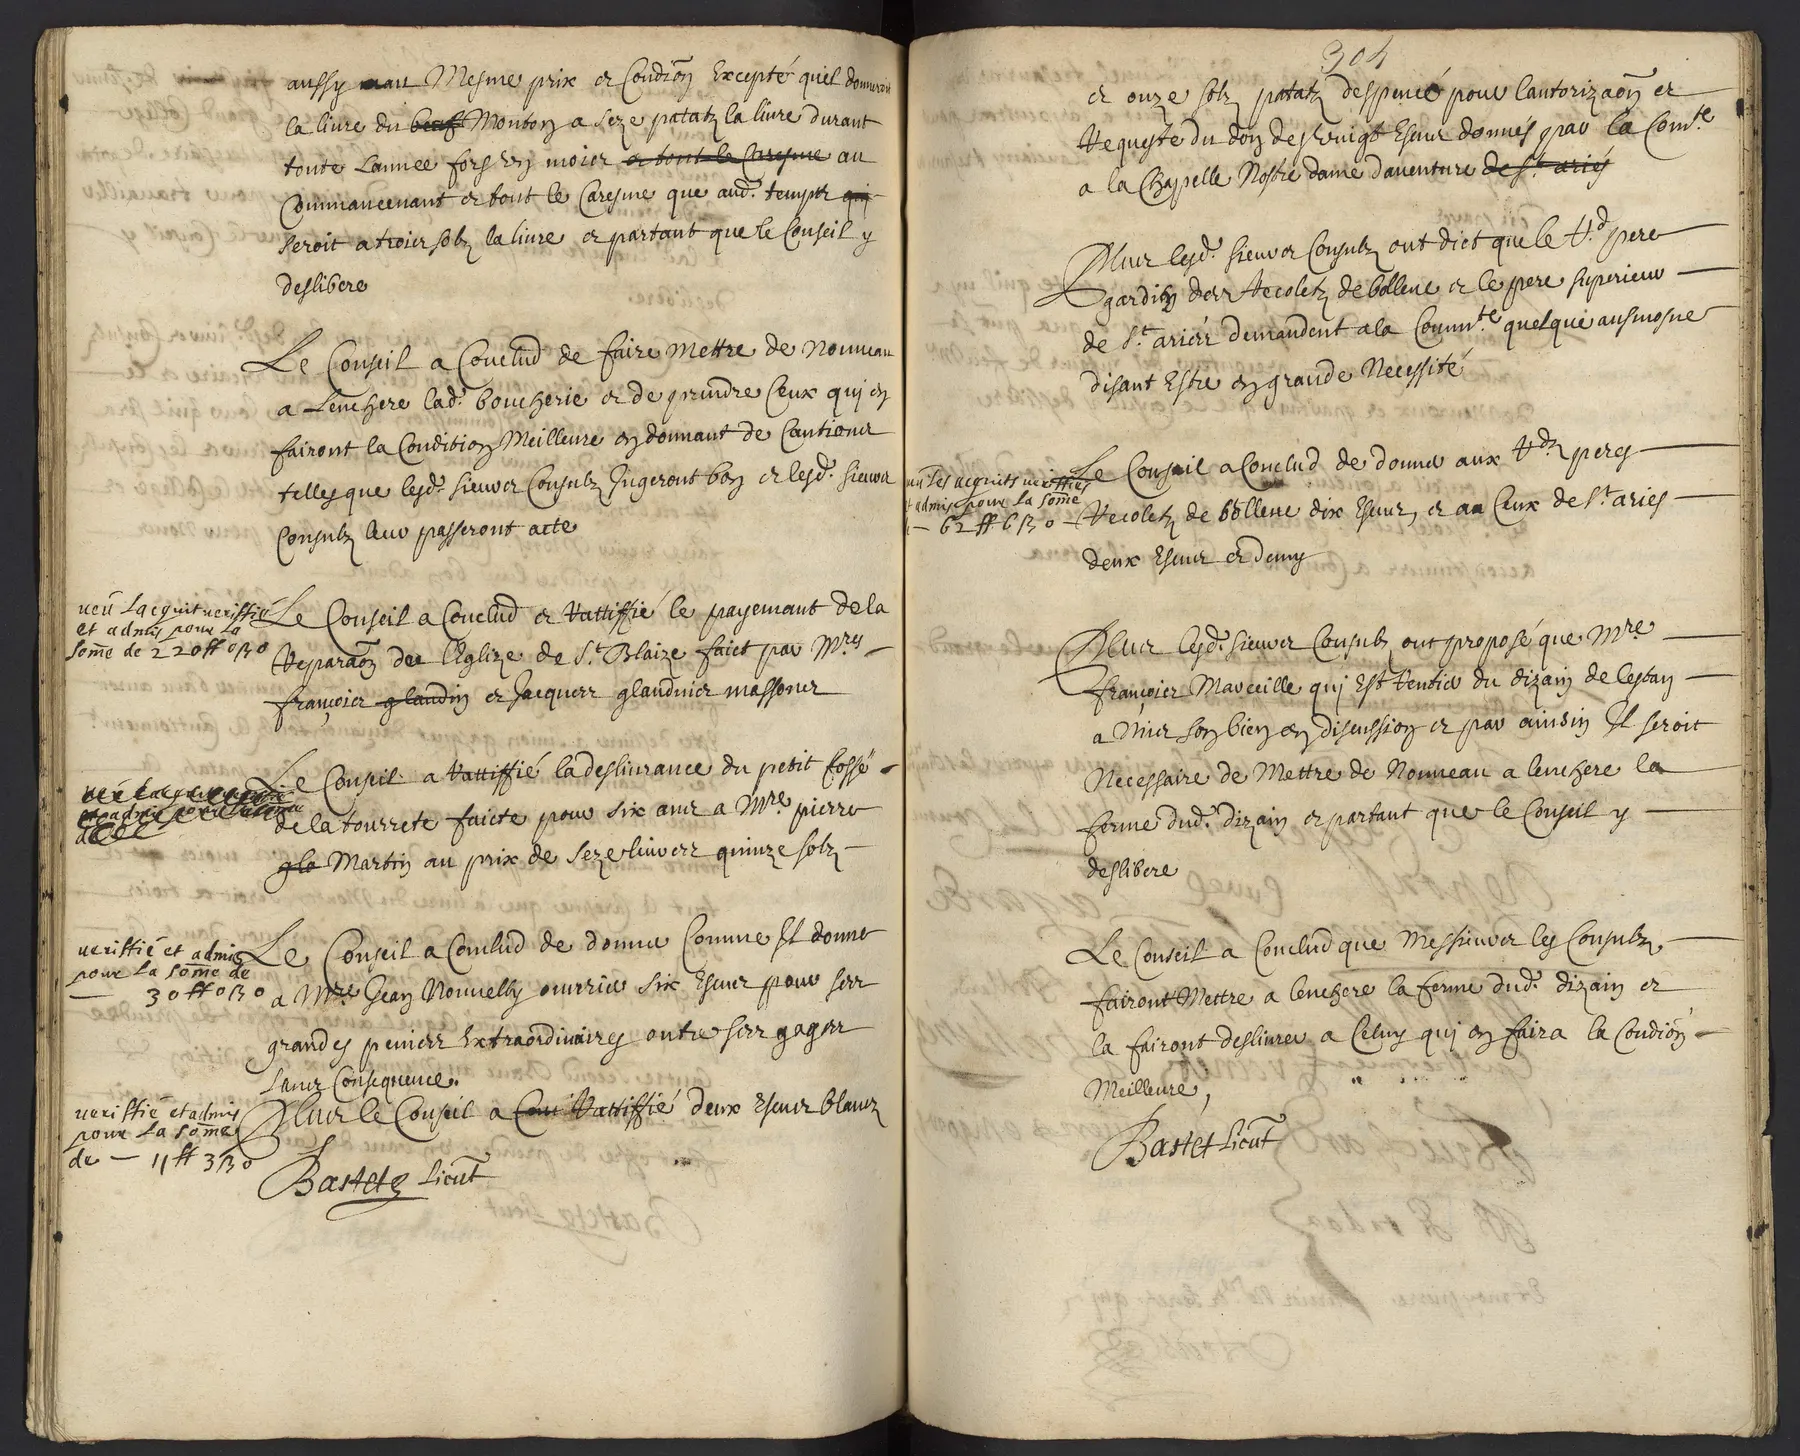 aussy au Mesme prix et Condion Excepté quil donneroit
la livre du beuf Mouton a seze patatz la livre durant
toute Lannee fors en mois et tout le Caresme au
Commancemant et tout le Caresme que aud. temps
seroit a trois solz la livre et partant que le Conseil y
deslibere
Le Conseil a Conclud de faire Mettre de Nouveau
a Lenchere lad. boucherie et de prendre Ceux qui en
fairont la Condition Meilleure en donnant de Cautions
telles que lesd. sieurs Consulz Jugeront bon et lesd. sieurs
Consulz leur passeront acte
veu Lacquit veriffié
et admis pour la
some de 220 ff 0 ß 0
Le Conseil a Conclud et Rattiffié le payemant de la
Reparaon de lEglize de St. Blaize faict par Mres
françois glaudin et Jacques glaudnier massons
Le Conseil a Rattiffié la deslivrance du petit fossé
de la tourrete faicte pour six ans a Mre pierre
glo Martin au prix de seze livres quinze solz
veriffié et admis
pour La some de
30 ff 0 ß 0
Le Conseil a Conclud de donner Comme Il donne
a Mre Jean Nouvelly ouvrier six Escus pour ses
grandes peines Extraordinaires outre ses gages
sans Consequence.
veriffié et admis
pour La some
de 11 ff 3 ß 0
Plus le Conseil a Con Rattiffié deux Escus blancz
Bastetz Lieut
304
et onze solz patatz despencé pour lautorizaon et
Requeste du don des vingt Escus donnés par la Comte
a la Chapelle Nostre dame daventure de St. ariés
Plus lesd. sieurs Consulz ont dict que le Rd. pere
gardien des Recoletz de bollene et le pere superieur
de St. ariés demandent a la Commte quelque ausmosne
disant Estre en grande Necessité
veu Les acquits veriffiés
et admis pour La some
62 ff 6 ß 0
Le Conseil a Conclud de donner aux Rdz peres
Recoletz de bollene dix Escus, et a Ceux de St. aries
deux Escus et demy
Plus lesd. sieurs Consulz ont proposé que Mre
françois Marceille qui Est Rentier du dizain de lestan
a Mis son bien en discussion et par ainsin Il seroit
Necessaire de Mettre de Nouveau a lenchere la
ferme dud. dizain et partant que le Conseil y
deslibere
Le Conseil a Conclud que Messieurs les Consulz
fairont Mettre a lenchere la ferme dud. dizain et
la fairont deslivrer a Celuy qui en faira la Condion
Meilleure,
Bastet Lieut